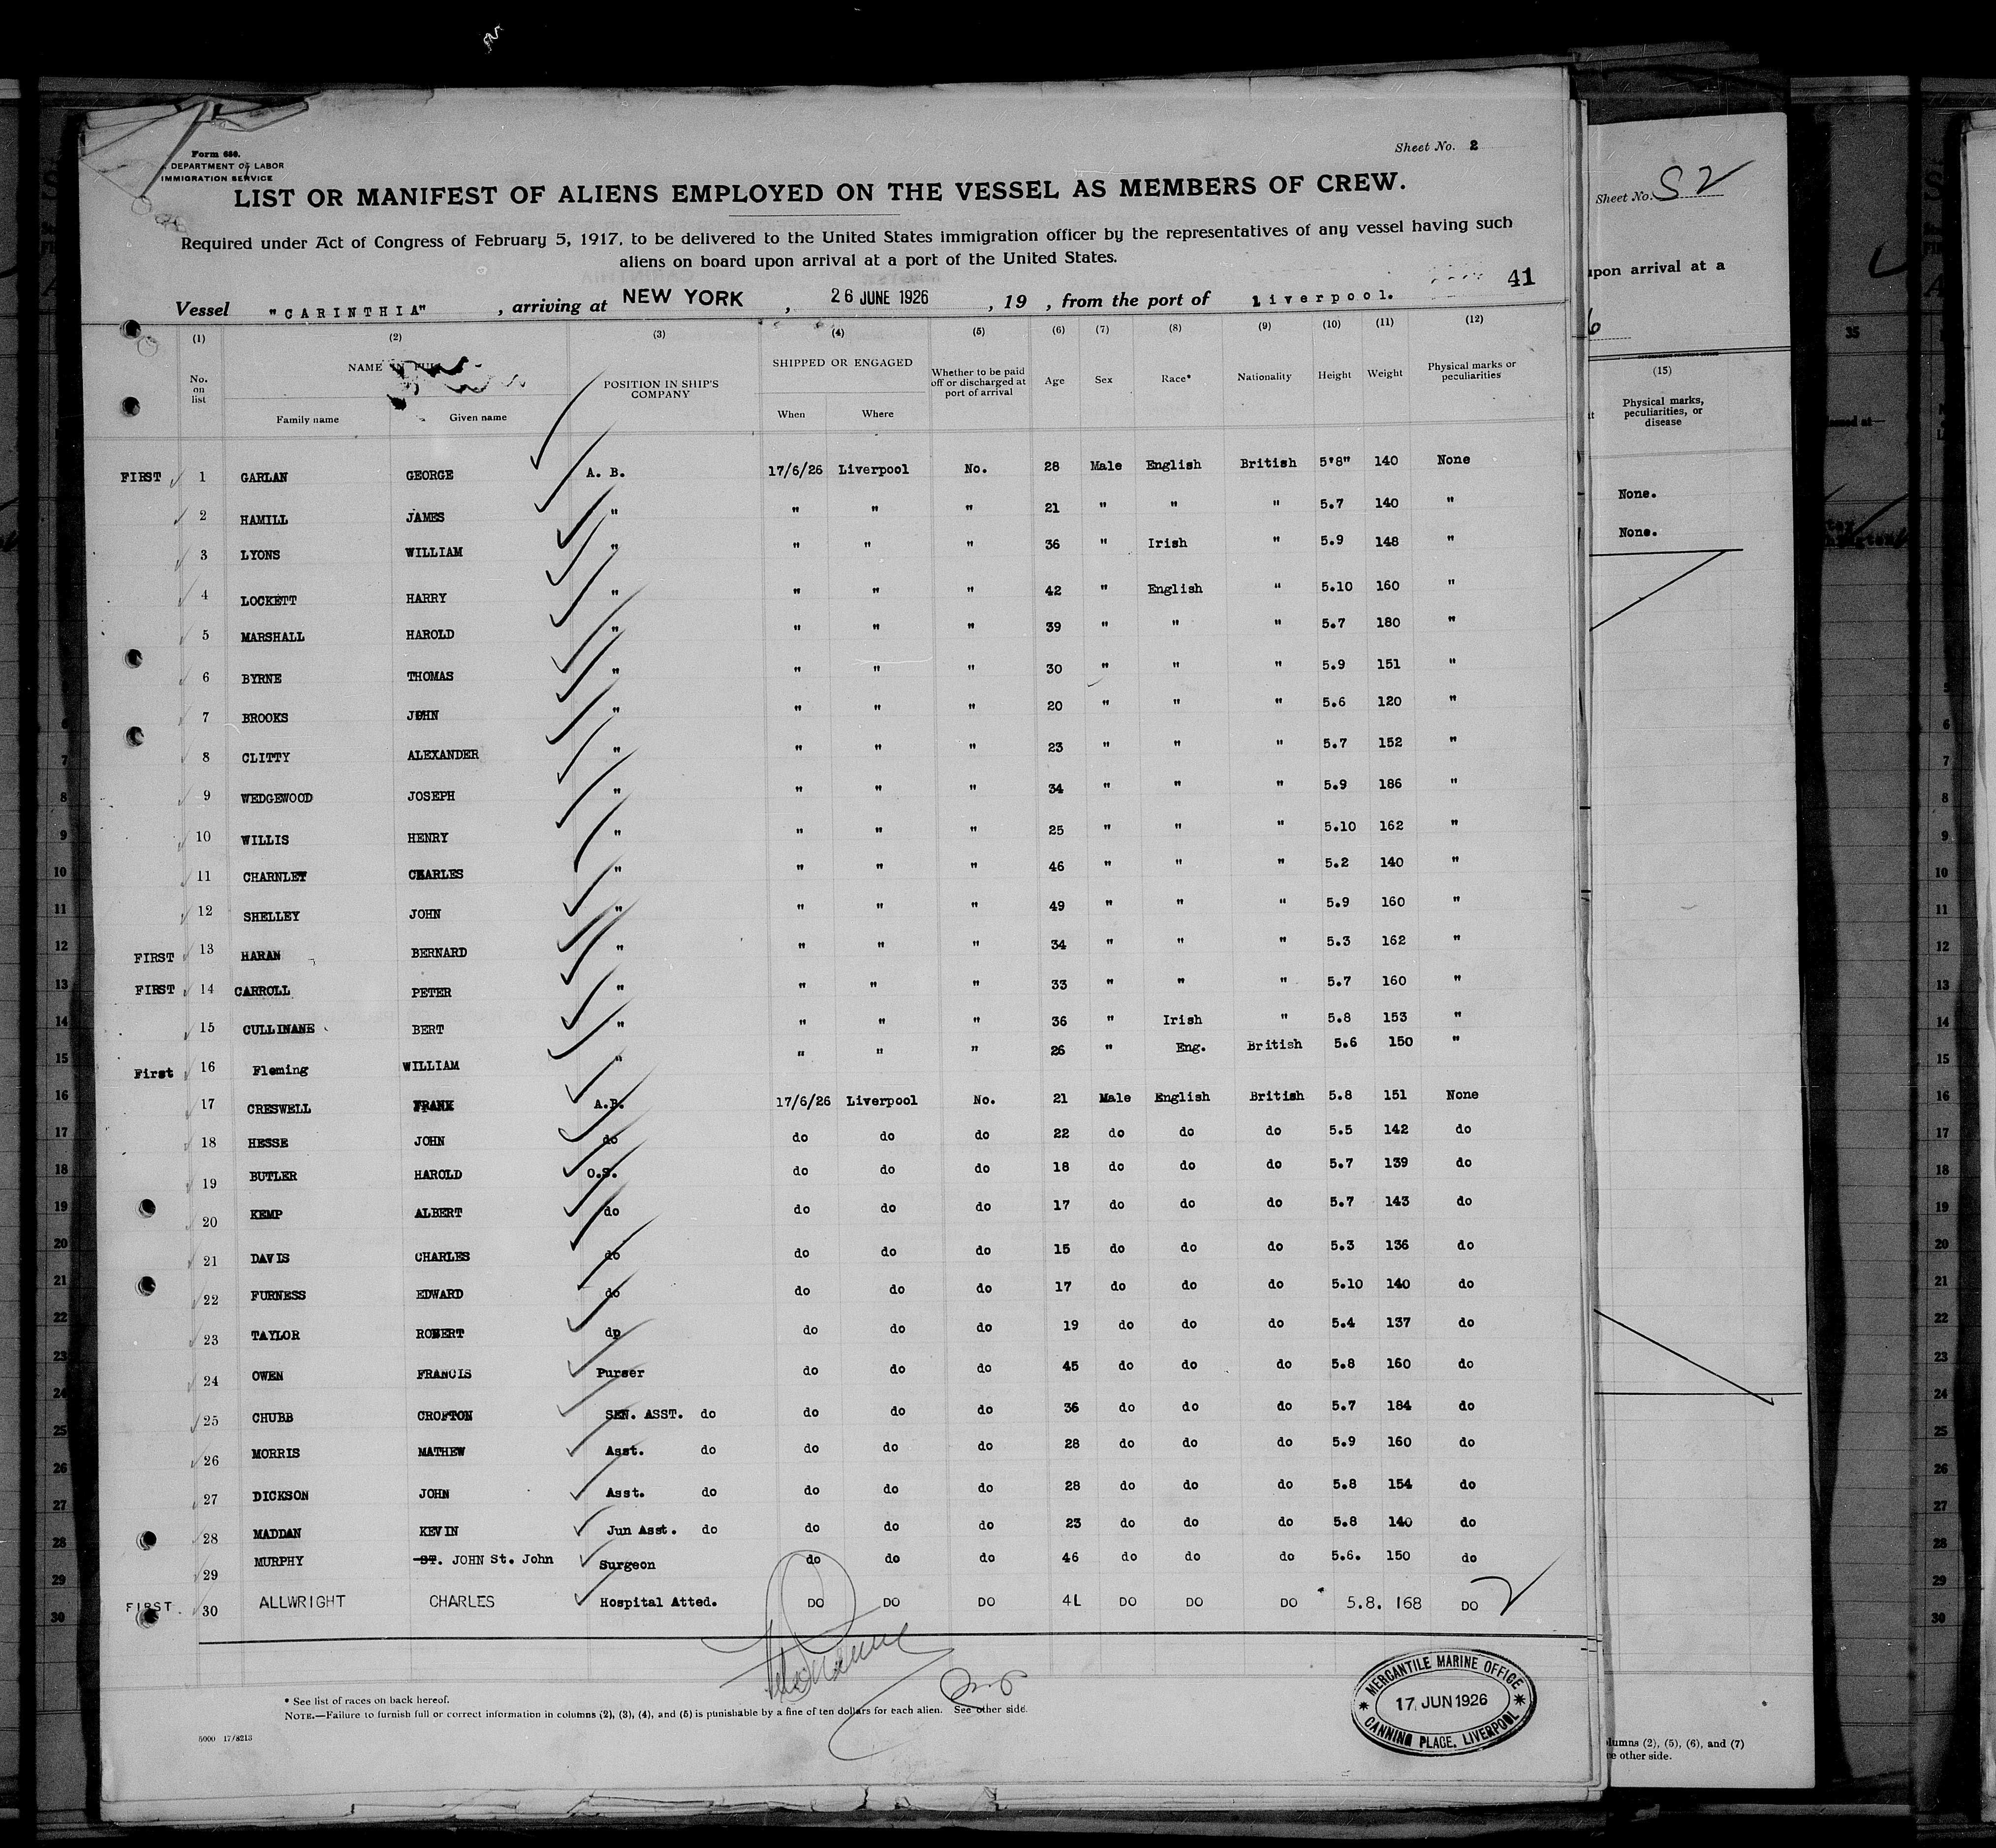 Form 680.
DEPARTMENT OF LABOR
IMMIGRATION SERVICE
Sheet No. 2
LIST OR MANIFEST OF ALIENS EMPLOYED ON THE VESSEL AS MEMBERS OF CREW.
Required under Act of Congress of February 5, 1917, to be delivered to the United States immigration officer by the representatives of any vessel having such
aliens on board upon arrival at a port of the United States.
41
Vessel "CARINTHIA", arriving at NEW YORK, 26 JUNE 1926, 19 , from the port of Liverpool.
(1) (2) (3) (4) (5) (6) (7) (8) (9) (10) (11) (12)
No. on list NAME IN FULL Family name Given name POSITION IN SHIP'S COMPANY SHIPPED OR ENGAGED When Where Whether to be paid off or discharged at port of arrival Age Sex Race* Nationality Height Weight Physical marks or peculiarities
FIRST 1 GARLAN GEORGE A. B. 17/6/26 Liverpool No. 28 Male English British 5'8" 140 None
2 HAMILL JAMES " " " " 21 " " " 5.7 140 "
3 LYONS WILLIAM " " " " 36 " Irish " 5.9 148 "
4 LOCKETT HARRY " " " " 42 " English " 5.10 160 "
5 MARSHALL HAROLD " " " " 39 " " " 5.7 180 "
6 BYRNE THOMAS " " " " 30 " " " 5.9 151 "
7 BROOKS JOHN " " " " 20 " " " 5.6 120 "
8 CLITTY ALEXANDER " " " " 23 " " " 5.7 152 "
9 WEDGEWOOD JOSEPH " " " " 34 " " " 5.9 186 "
10 WILLIS HENRY " " " " 25 " " " 5.10 162 "
11 CHARNLEY CHARLES " " " " 46 " " " 5.2 140 "
12 SHELLEY JOHN " " " " 49 " " " 5.9 160 "
FIRST 13 HARAN BERNARD " " " " 34 " " " 5.3 162 "
FIRST 14 CARROLL PETER " " " " 33 " " " 5.7 160 "
15 CULLINANE BERT " " " " 36 " Irish " 5.8 153 "
First 16 Fleming WILLIAM " " " " 26 " Eng. British 5.6 150 "
17 CRESWELL FRANK A.B. 17/6/26 Liverpool No. 21 Male English British 5.8 151 None
18 HESSE JOHN do do do do 22 do do do 5.5 142 do
19 BUTLER HAROLD O.S. do do do 18 do do do 5.7 139 do
20 KEMP ALBERT do do do do 17 do do do 5.7 143 do
21 DAVIS CHARLES do do do do 15 do do do 5.3 136 do
22 FURNESS EDWARD do do do do 17 do do do 5.10 140 do
23 TAYLOR ROBERT do do do do 19 do do do 5.4 137 do
24 OWEN FRANCIS Purser do do do 45 do do do 5.8 160 do
25 CHUBB CROFTON SEN. ASST. do do do do 36 do do do 5.7 184 do
26 MORRIS MATHEW Asst. do do do do 28 do do do 5.9 160 do
27 DICKSON JOHN Asst. do do do do 28 do do do 5.8 154 do
28 MADDAN KEVIN Jun Asst. do do do do 23 do do do 5.8 140 do
29 MURPHY ST. JOHN St. John Surgeon do do do 46 do do do 5.6. 150 do
FIRST. 30 ALLWRIGHT CHARLES Hospital Atted. DO DO DO 4L DO DO DO 5.8. 168 DO
* See list of races on back hereof.
NOTE.—Failure to furnish full or correct information in columns (2), (3), (4), and (5) is punishable by a fine of ten dollars for each alien. See other side.
5000 17/8213
MERCANTILE MARINE OFFICE
17 JUN 1926
CANNING PLACE, LIVERPOOL
Sheet No. S2
upon arrival at a
(15)
Physical marks,
peculiarities, or
disease
None.
None.
columns (2), (5), (6), and (7)
other side.
35